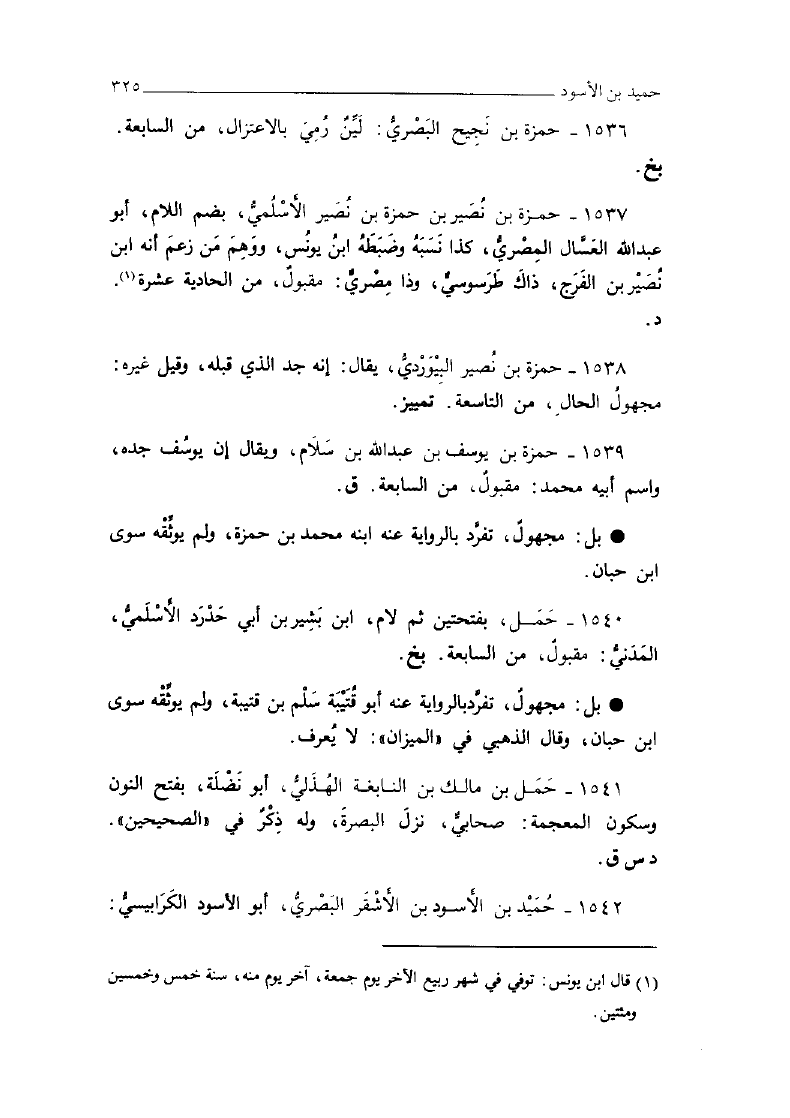 حميد بن الأسود ٣٢٥
١٥٣٦ ـ حمزة بن نَجِيح البَصْريُّ: لَيِّنٌ رُمِيَ بالاعتزال، من السابعة.
بخ.
١٥٣٧ ـ حمزة بن نُصَير بن حمزة بن نُصَير الأَسْلُميُّ، بضم اللام، أبو
عبدالله العَسَّال المِصْريُّ، كذا نَسَبَهُ وضَبَطَهُ ابنُ يونُس، ووَهِمَ مَن زعمَ أنه ابن
نُصَيْر بن الفَرَج، ذاكَ طَرَسوسيٌّ، وذا مِصْريٌّ: مقبولٌ، من الحادية عشرة(١).
د.
١٥٣٨ ـ حمزة بن نُصير البِيْوَرْديُّ، يقال: إنه جد الذي قبله، وقيل غيره:
مجهولُ الحالِ، من التاسعة. تمييز.
١٥٣٩ ـ حمزة بن يوسف بن عبدالله بن سَلَام، ويقال إن يوسُف جده،
واسم أبيه محمد: مقبولٌ، من السابعة. ق.
● بل: مجهولٌ، تفرَّد بالرواية عنه ابنه محمد بن حمزة، ولم يوثِّقْه سوى
ابن حبان.
١٥٤٠ ـ حَمَـل، بفتحتين ثم لام، ابن بَشِير بن أبي حَدْرَد الأَسْلَميُّ،
المَدَنيُّ: مقبولٌ، من السابعة. بخ.
● بل: مجهولٌ، تفرَّدبالرواية عنه أبو قُتَيْبَة سَلْم بن قتيبة، ولم يوثِّقْه سوى
ابن حبان، وقال الذهبي في «الميزان»: لا يُعرف.
١٥٤١ ـ حَمَل بن مالك بن النابغة الهُذَليُّ، أبو نَضْلَة، بفتح النون
وسكون المعجمة: صحابيٌّ، نزلَ البصرةَ، وله ذِكْرٌ في «الصحيحين».
د س ق.
١٥٤٢ ـ حُمَيْد بن الأَسود بن الأَشْقَر البَصْريُّ، أبو الأسود الكَرَابيسيُّ:
(١) قال ابن يونس: توفي في شهر ربيع الآخر يوم جمعة، آخر يوم منه، سنة خمس وخمسين
ومئتين.